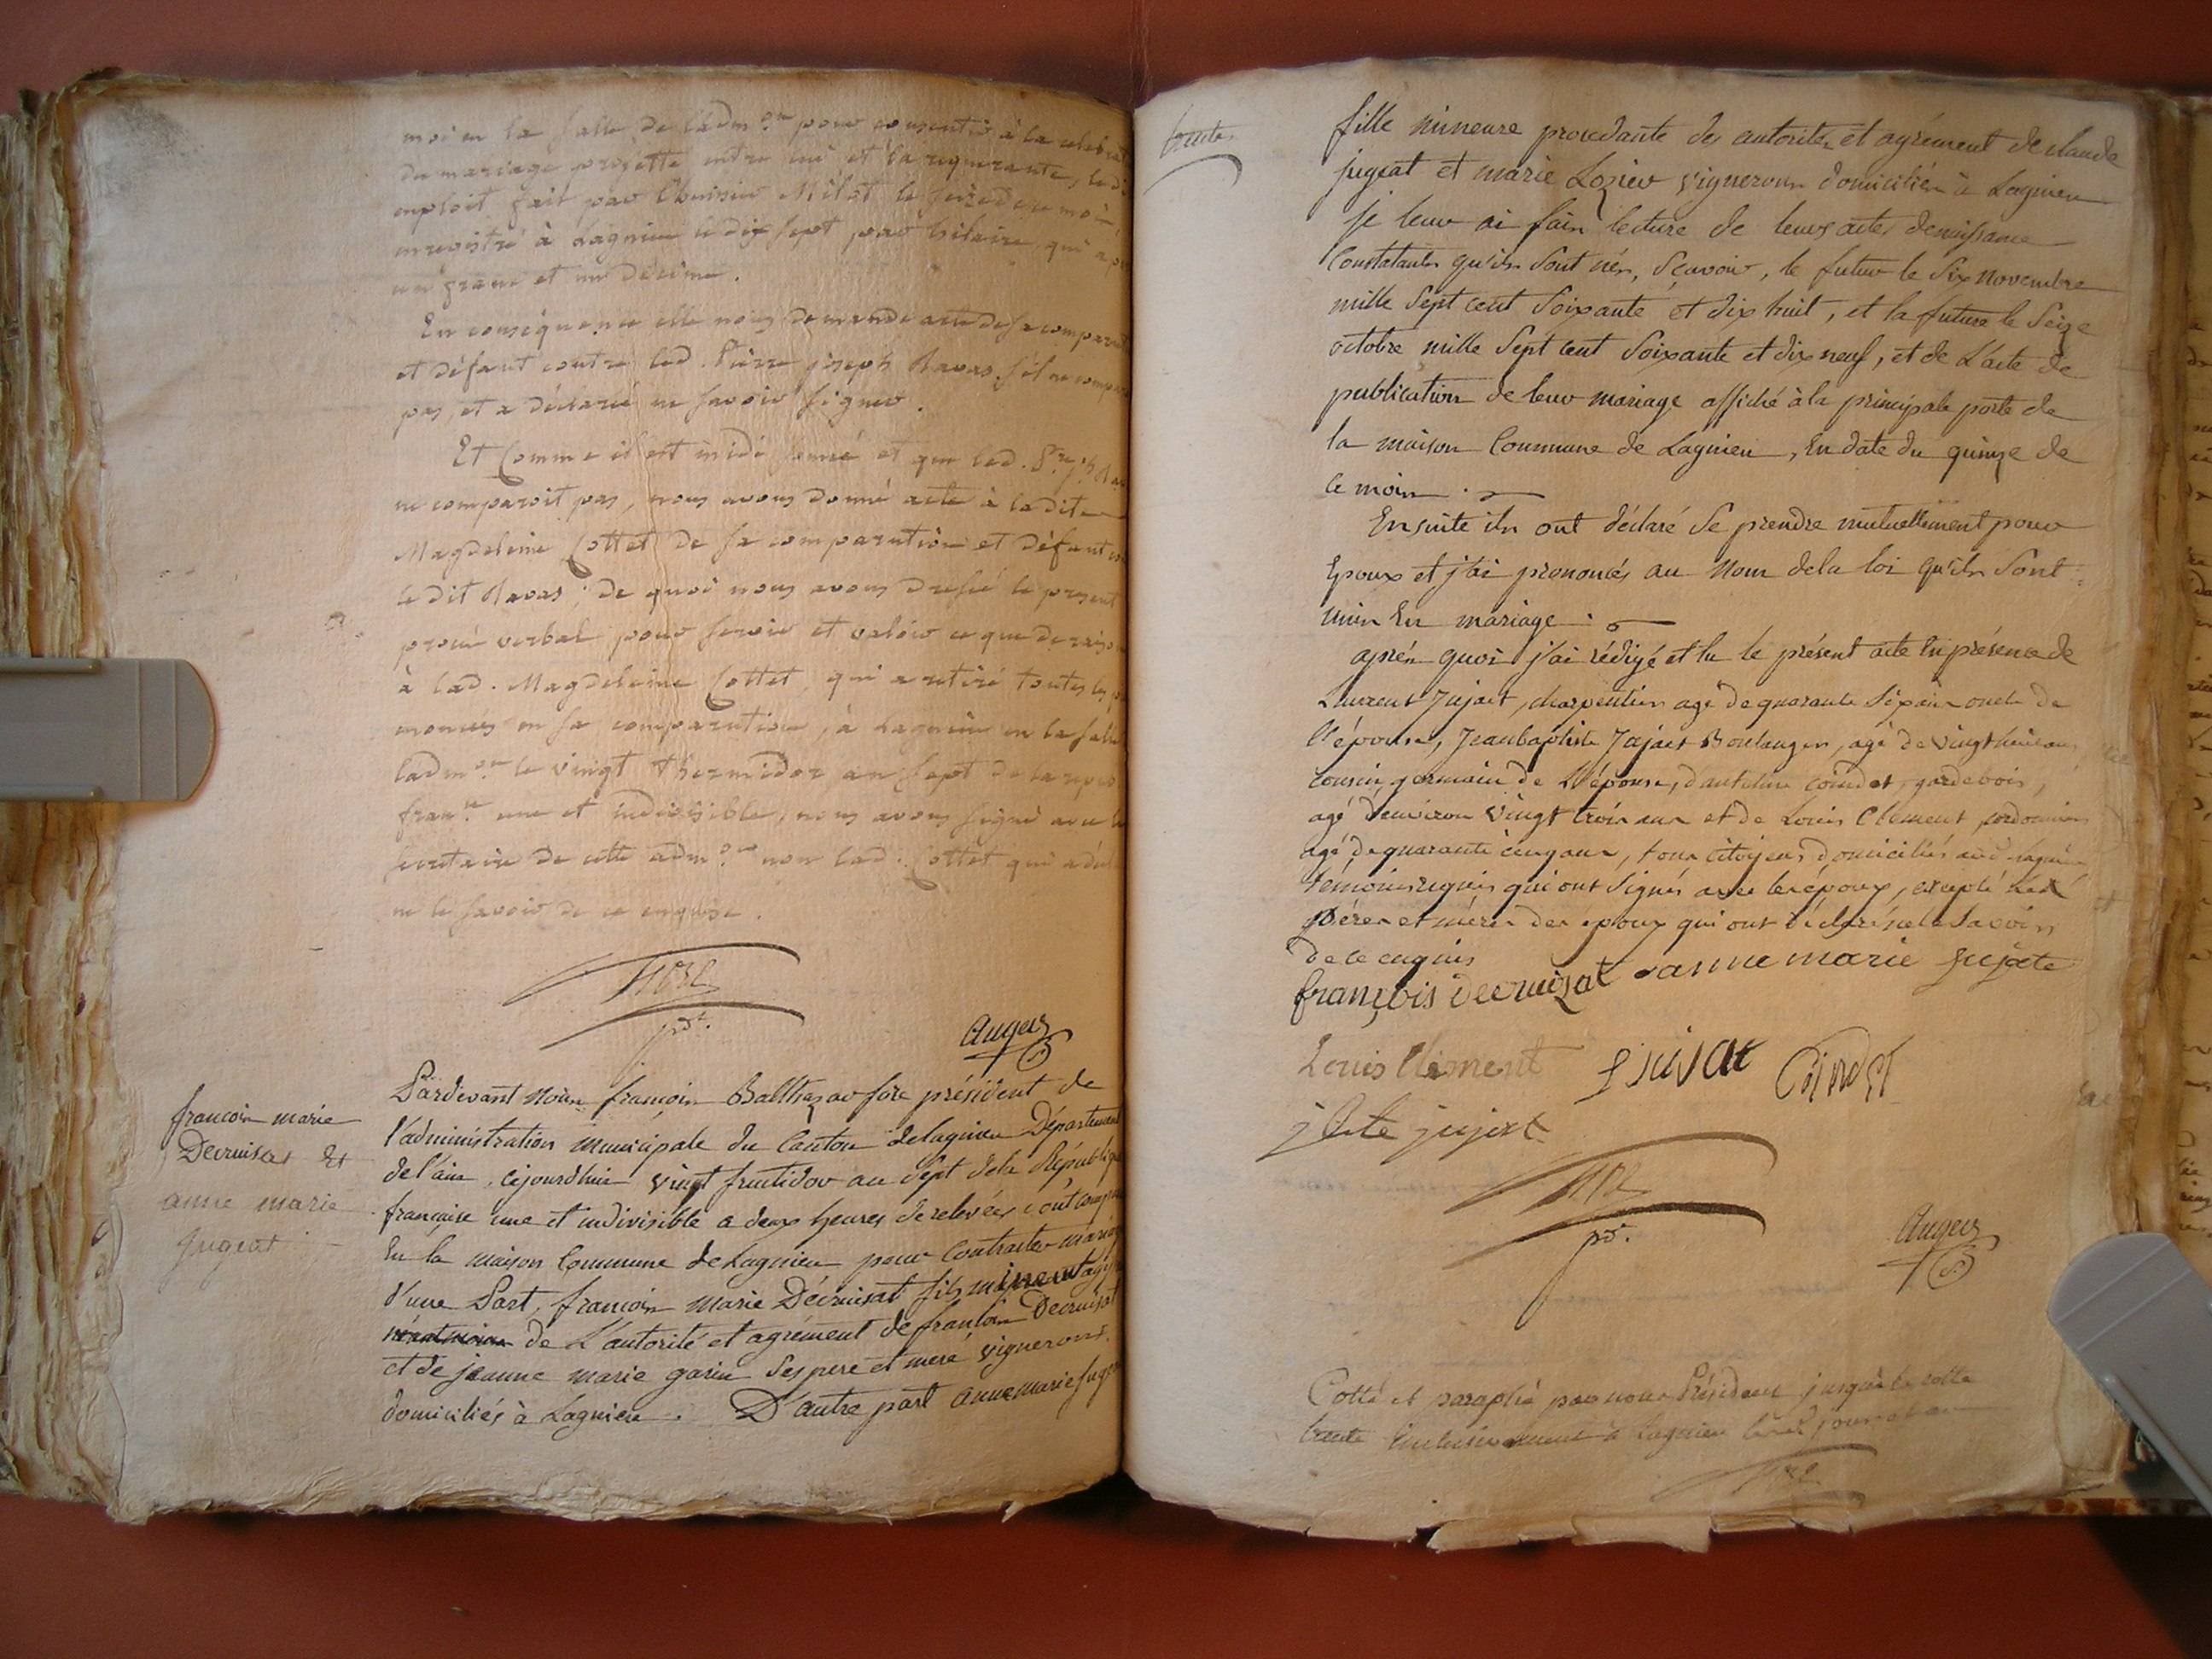 moi en la salle de l'adm.on pour consentir à la celebrat
du mariage projetté entre lui et la requerante, le d
exploit fait par l'huissier Milet le seize de ce mois
enregistré à Lagnieu le dix sept par hilaire, qui a
un franc et un décime.
En conséquence elle nous demande acte de sa comparut
et défaut contre led. Pierre joseph Ravas s'il ne compar
pas, et a déclaré ne savoir signer.
Et Comme il est midi sonné et que led. Pre jh Rav
ne comparoit pas, nous avons donné acte à la dite
Magdeleine Cottet de sa comparution et défaut
le dit Ravas; de quoi nous avons dressé le present
procès verbal pour servir et valoir ce que de raison
à lad. Magdeleine Cottet, qui a retiré toutes les
énoncés en sa comparution, à Lagnieu en la salle
ladm.on le vingt thermidor an sept de la repub
fran.se une et indivisible, nous avons signé avec le
secretaire de cette adm.on non lad. Cottet qui a décl
ne le savoir de ce enquise.
fore
pdt.
Auger
francois marie
Decruisat Et
anne marie
Jugeat
Pardevant Nous françois Balthazar fore président de
l'administration municipale du Canton de lagnieu Département
de l'ain, cejourdhui vingt fructidor an Sept de la Républiq
française une et indivisible a deux heures de relevées sont comp
En la maison Commune de Lagnieu pour Contracter mariag
d'une Part, francois Marie Décruisat fils mineur
de L'autorité et agrément de francois Decruisat
et de jeanne marie garin Ses pere et mere vignerons
domiciliés à Lagnieu. D'autre part anne marie Juge
trente
fille mineure procedante des autorités et agrément de claude
jugeat et marie Lozier vignerons domiciliés à Lagnieu
Je leur ai fais lecture de leurs actes denaissance
Constatants qu'ils Sont nés, Sçavoir, le futur le Six novembre
mille Sept cent Soixante et dix huit, et la future le Seize
octobre mille Sept cent Soixante et dix neuf, et de L'acte de
publication de leur mariage affiché à la principale porte de
la maison Commune de Lagnieu, En date du quinze de
ce mois.
Ensuite ils ont déclaré Se prendre mutuellement pour
Epoux et j'ai prononcés au Nom dela loi qu'ils Sont
unis En mariage.
après quoi j'ai rédigé et lu le présent acte En présence de
Laurent Jujeat, charpentier agé de quarante six ans oncle de
l'épouse, Jeanbaptiste Jujeat Boulanger, agé de vingt huit ans
cousin germain de L'épouse, d'antelme coindet, gardebois,
agé d'environ vingt trois ans et de Louis Clement, cordonnier
agé de quarante cinq ans, tous citoyens domiciliés aud Lagnieu
témoins requis qui ont Signés avec les époux, excepté les
Pères et mères des époux qui ont déclaré ne le Savoir
de ce enquis
françois decruizat anne marie jujate
Louis Clement l jujat Coindet
j bte jujeat
fore
pdt.
Auger
Cotté et paraphé par nous Président jusqu'à la cotte
trente inclusivement à Lagnieu lesd jour et an
fore